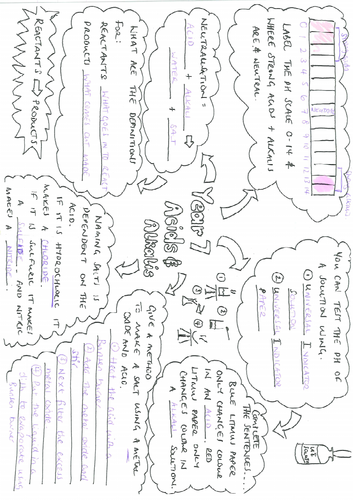 Year 7
Acids &
Alkalis
LABEL THE PH SCALE 0-14 &
WHERE STRONG ACIDS + ALKALIS
ARE & NEUTRAL
0 1 2 3 4 5 6 7 8 9 10 11 12 13 14
NEUTRALISATION =
ACID + ALKALI
WATER + SALT
WHAT ARE THE DEFINITIONS
FOR:
REACTANTS WHAT GOES IN TO START
PRODUCTS WHAT COMES OUT MADE
REACTANTS → PRODUCTS
YOU CAN TEST THE PH OF
A SOLUTION USING.
① UNIVERSAL INDICATOR
SOLUTION
② UNIVERSAL INDICATOR
PAPER
COMPLETE
THE SENTENCES...
BLUE LITMUS PAPER
ONLY CHANGES COLOUR
IN AN ACID. RED
LITMUS PAPER ONLY
CHANGES COLOUR IN
A ALKALI SOLUTION.
NAMING SALTS IS
DEPENDENT ON THE
ACID.
IF IT IS HYDROCHLORIC IT
MAKES A CHLORIDE
IF IT IS SULFURIC IT MAKES
A SULFATE. FOR NITRIC
MAKES A NITRATE.
① ②
③ ④
GIVE A METHOD
TO MAKE A SALT USING A METAL
OXIDE AND ACID.
② Add the metal oxide and
stir
③ Next filter the excess
metal oxide
④ Put the liquid in a
dish to evaporate using
Bunsen burner